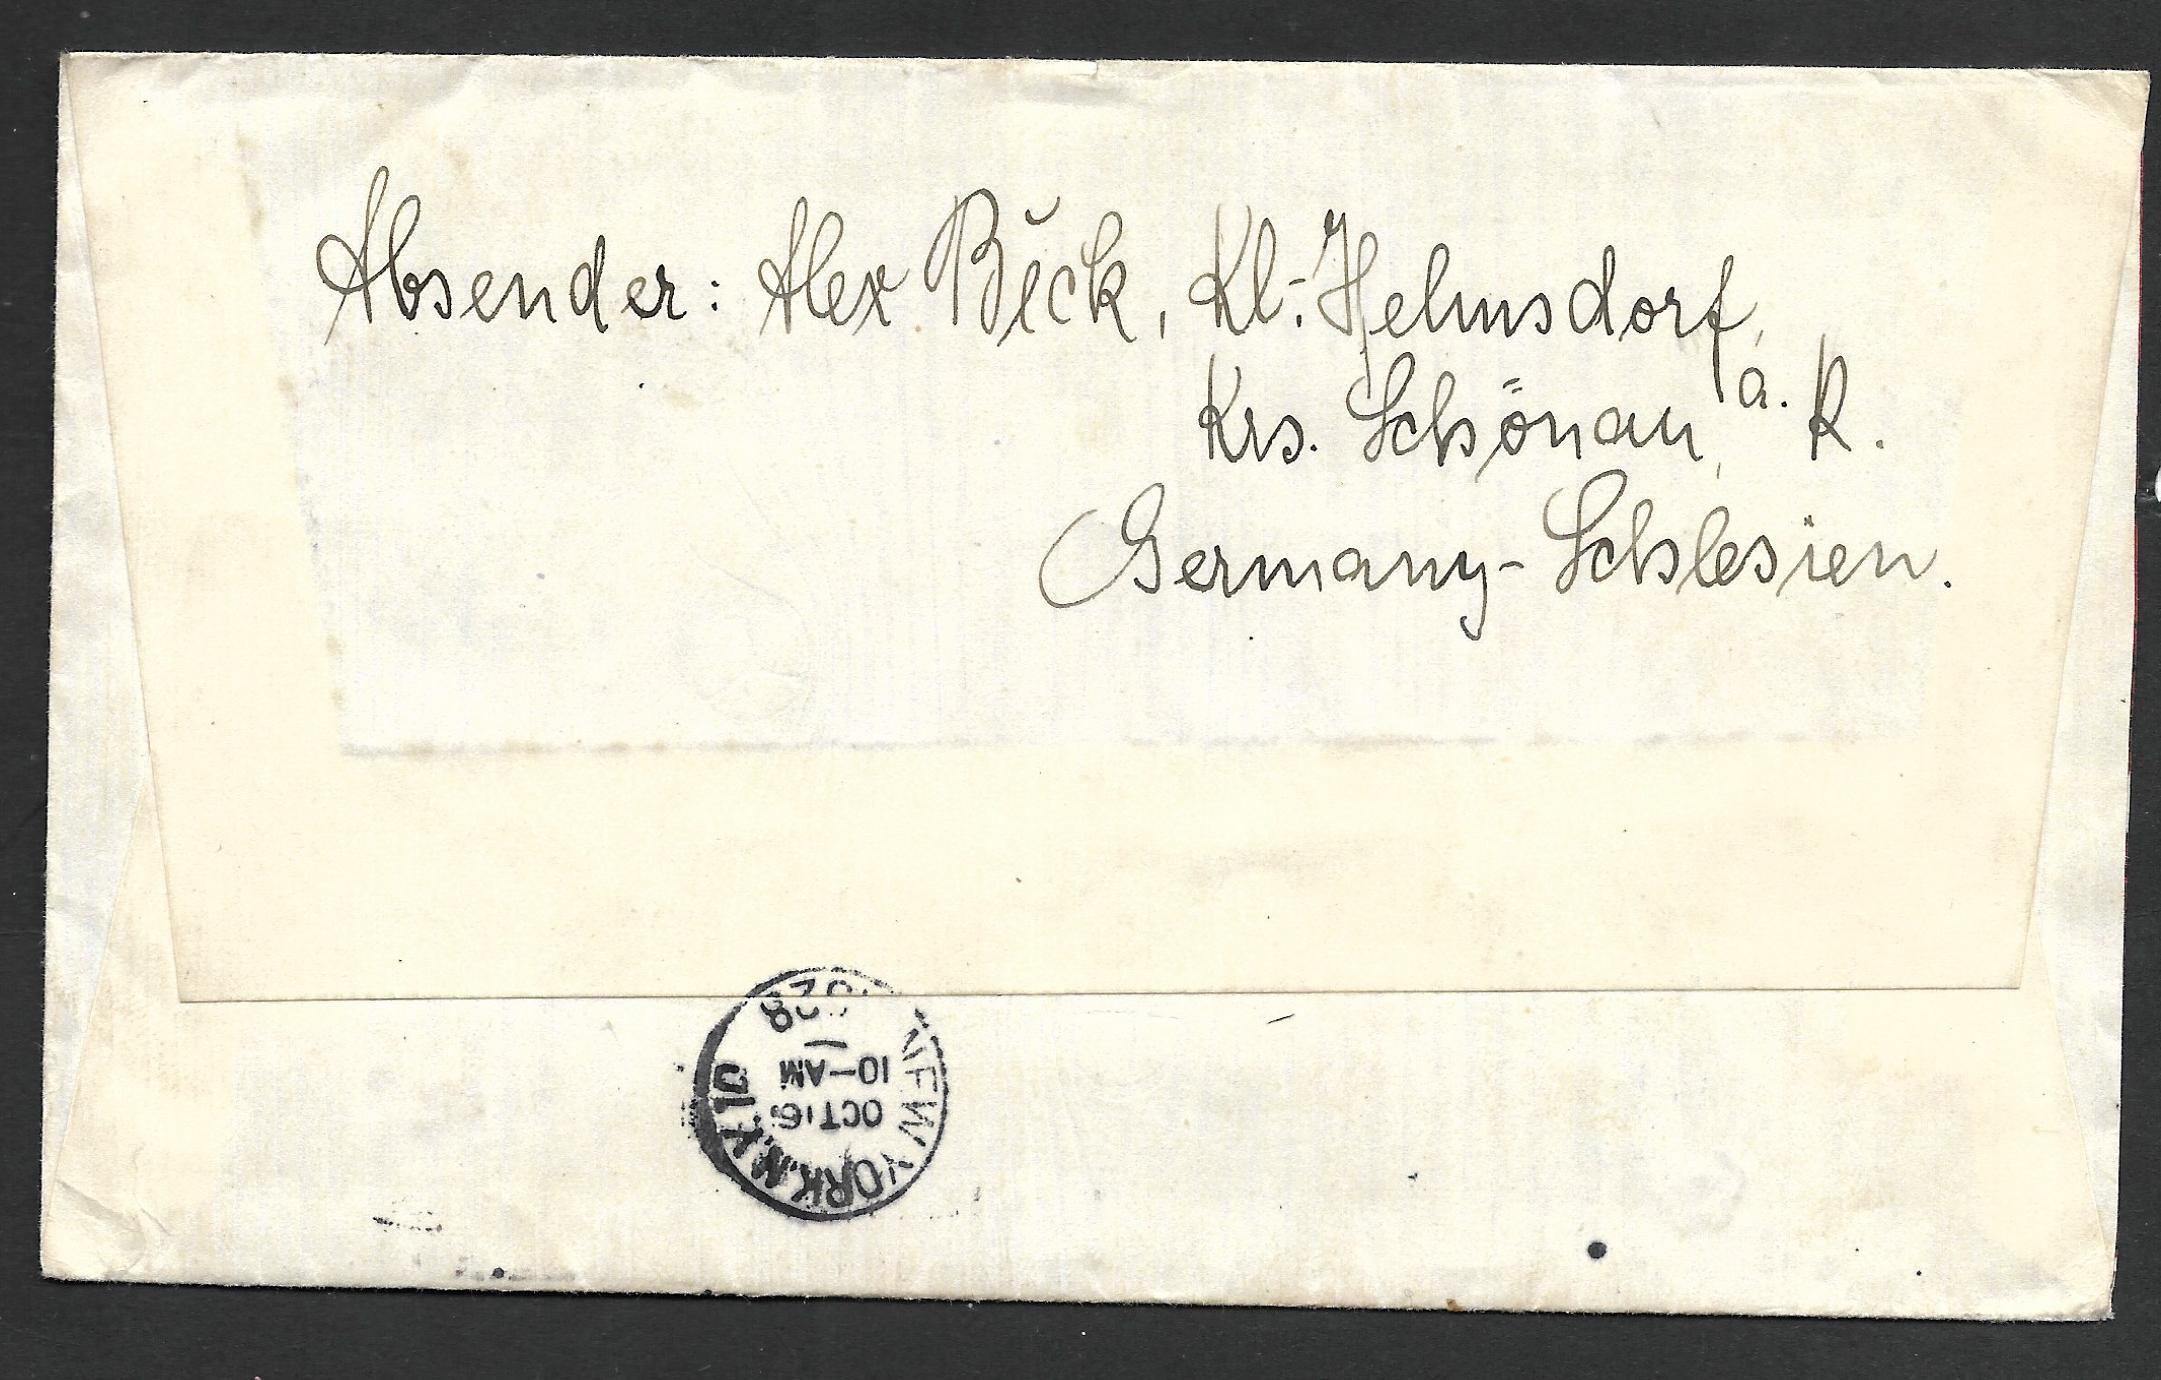 Absender: Alex Bick, Kl.-Helmsdorf,
Krs. Schönau, a. K.
Germany-Schlesien.
NEW YORK, N.Y.
OCT 16
10-AM
1928